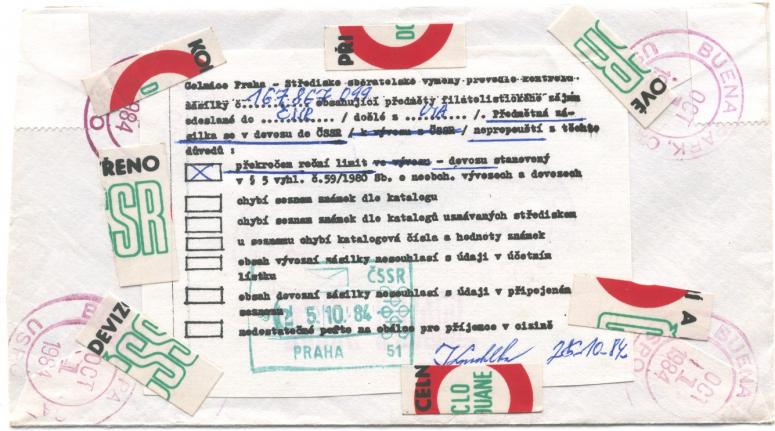 PŘI
OVÉ
BUENA
OCT
1984
Celnice Praha - Středisko sběratelské výměny provedlo kontrolu
zásilky č. 167867 099 obsahující předměty filatelistického zájmu
odeslané do / došlé z USA /. Předmětná zá-
silka se v dovozu do ČSSR / k vývozu z ČSSR / nepropouští z těchto
důvodů :
ŘENO
SSR
překročen roční limit ve vývozu - dovozu stanovený
v § 5 vyhl. č.59/1980 Sb. o neobch. vývozech a dovozech
chybí seznam známek dle katalogu
chybí seznam známek dle katalogů uznávaných střediskem
u seznamu chybí katalogová čísla a hodnoty známek
obsah vývozní zásilky nesouhlasí s údaji v účetním
lístku
obsah dovozní zásilky nesouhlasí s údaji v připojeném
seznamu
nedostatečné porto na obálce pro příjemce v cizině
ČSSR
5.10.84
PRAHA 51
25-10-84
DEVIZ
ČSS
OCT
1
1984
USPO
Í A
BUENA
OCT
1
1984
USPO
CELN
CLO
OUANE